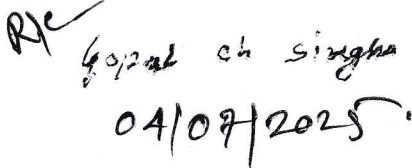 R/c
Gopal ch singha
04/07/2025